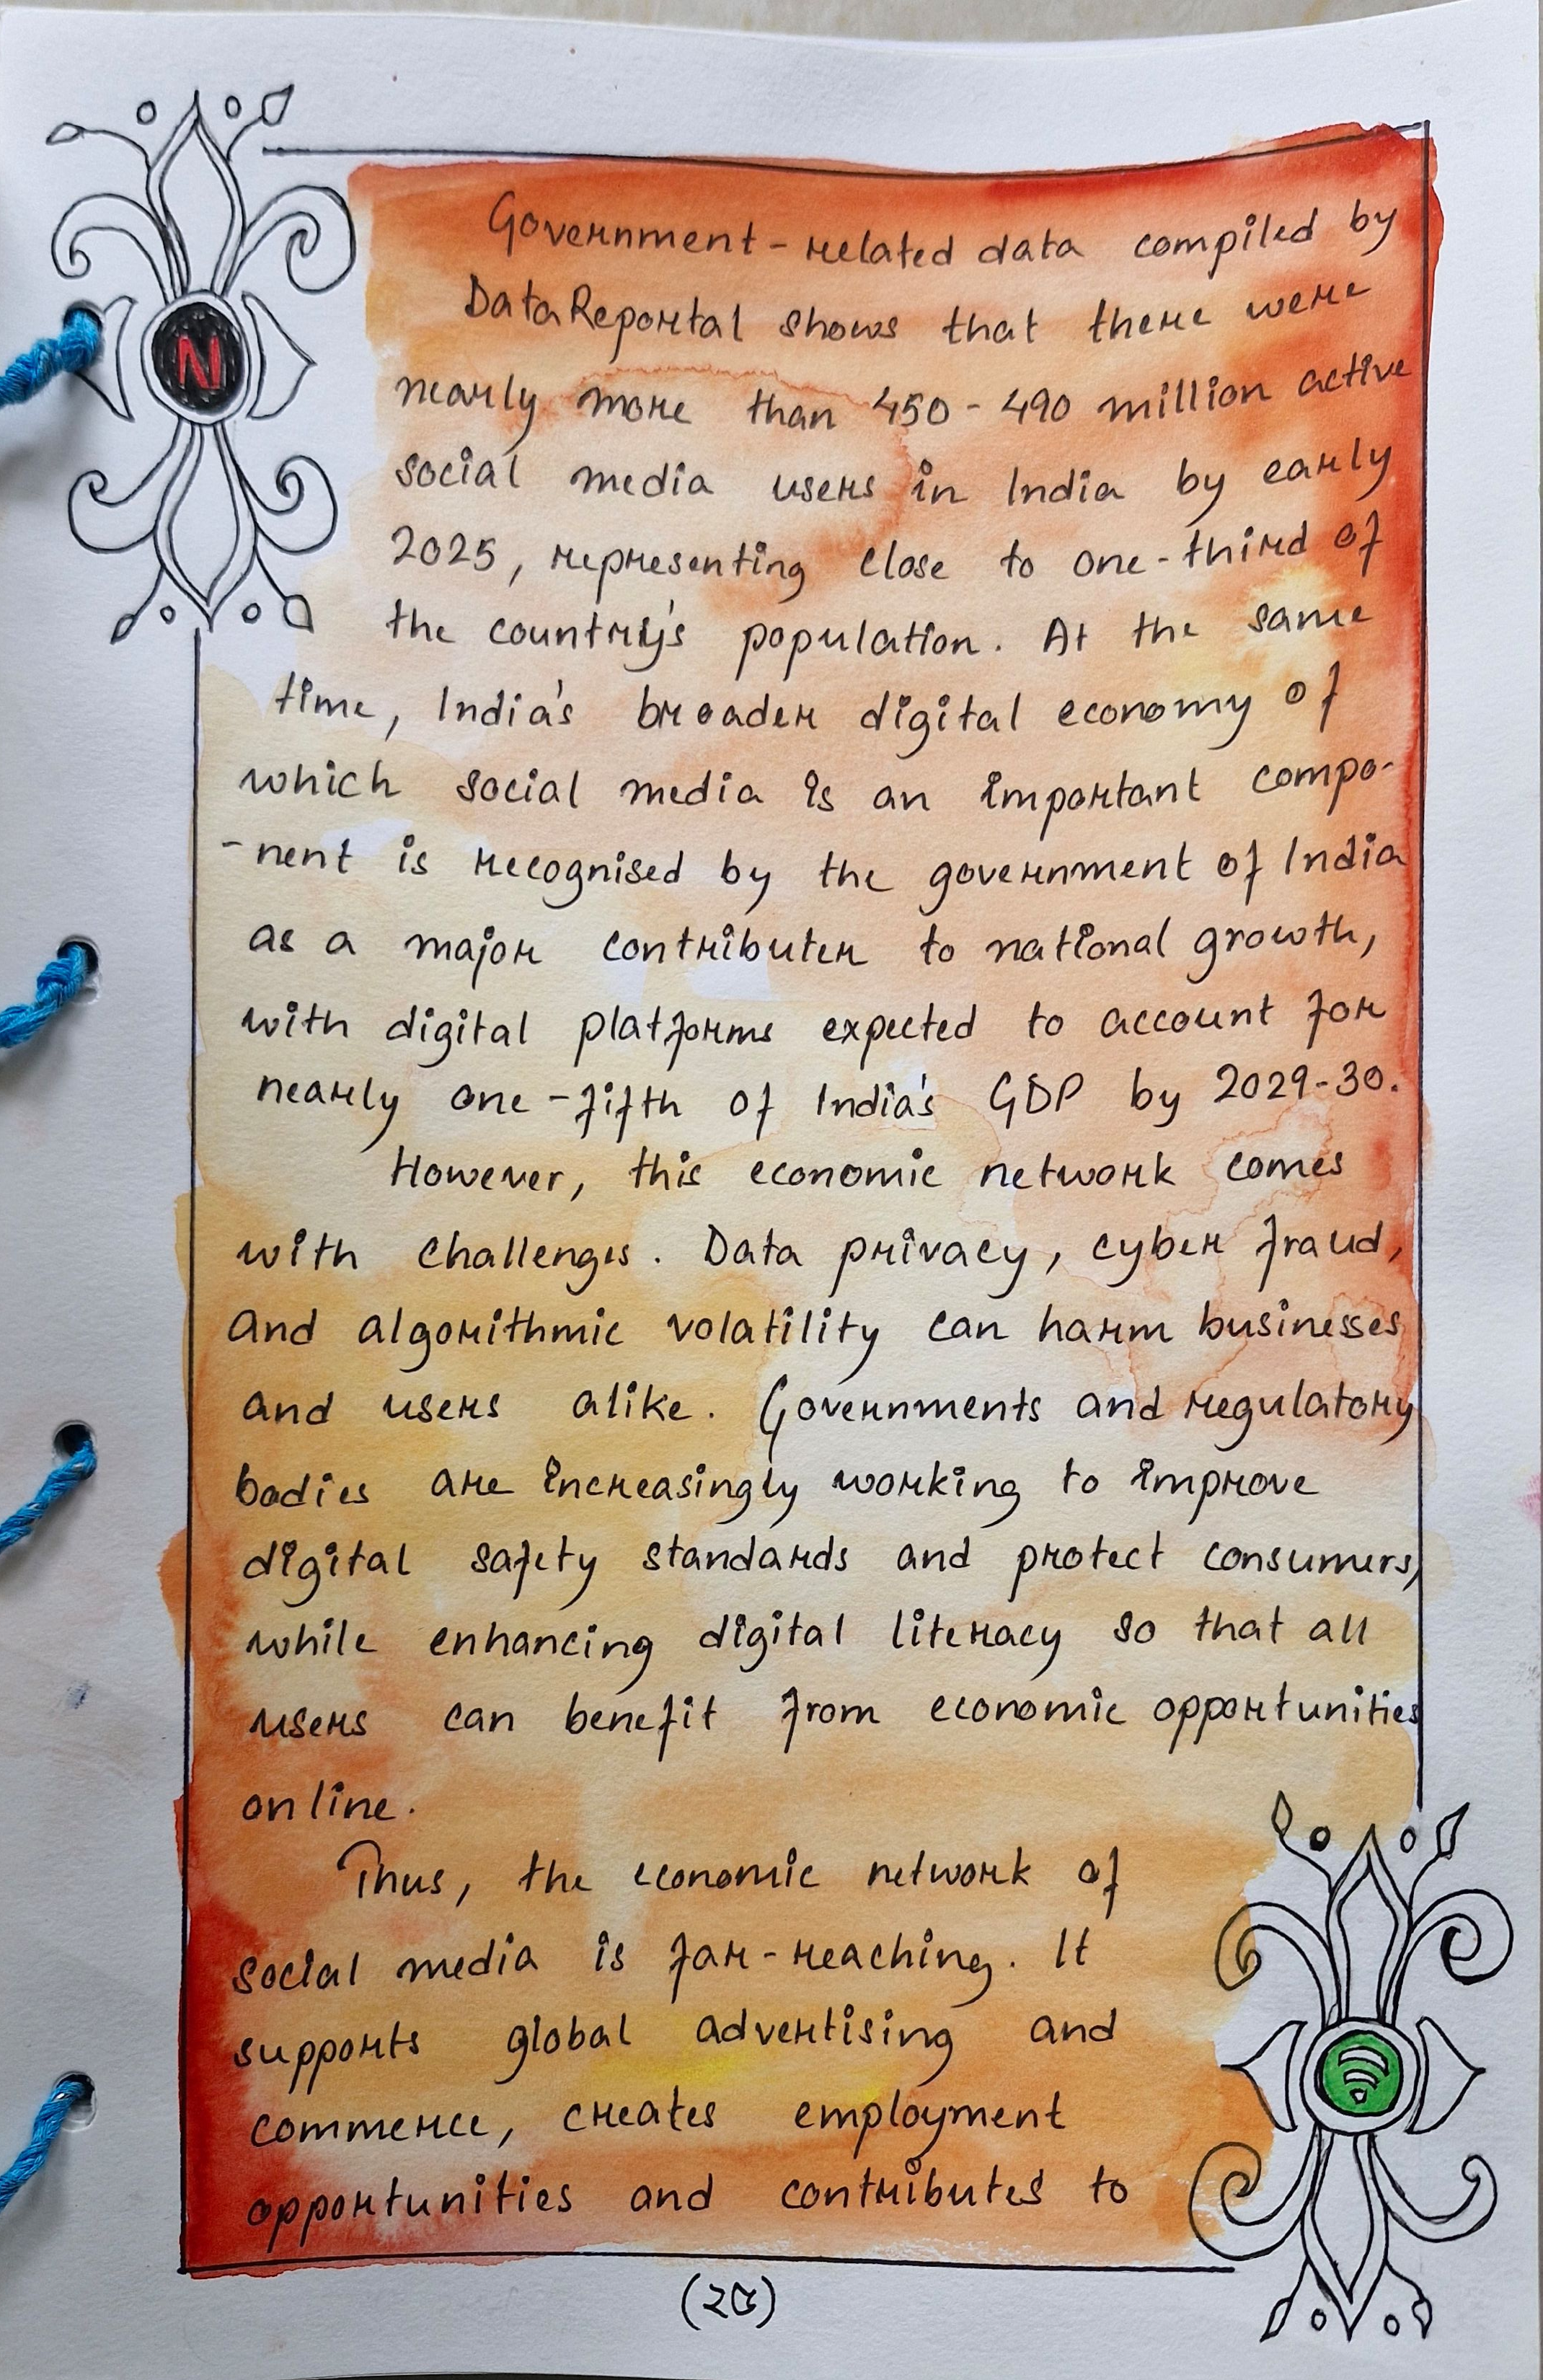 N
Government-related data compiled by
DataReportal shows that there were
nearly more than 450-490 million active
social media users in India by early
2025, representing close to one-third of
the country's population. At the same
time, India's broader digital economy of
which social media is an important compo-
-nent is recognised by the government of India
as a major contributer to national growth,
with digital platforms expected to account for
nearly one-fifth of India's GDP by 2029-30.
However, this economic network comes
with challenges. Data privacy, cyber fraud,
and algorithmic volatility can harm businesses
and users alike. Governments and regulatory
bodies are increasingly working to improve
digital safety standards and protect consumers,
while enhancing digital literacy so that all
users can benefit from economic opportunities
online.
Thus, the economic network of
social media is far-reaching. It
supports global advertising and
commerce, creates employment
opportunities and contributes to